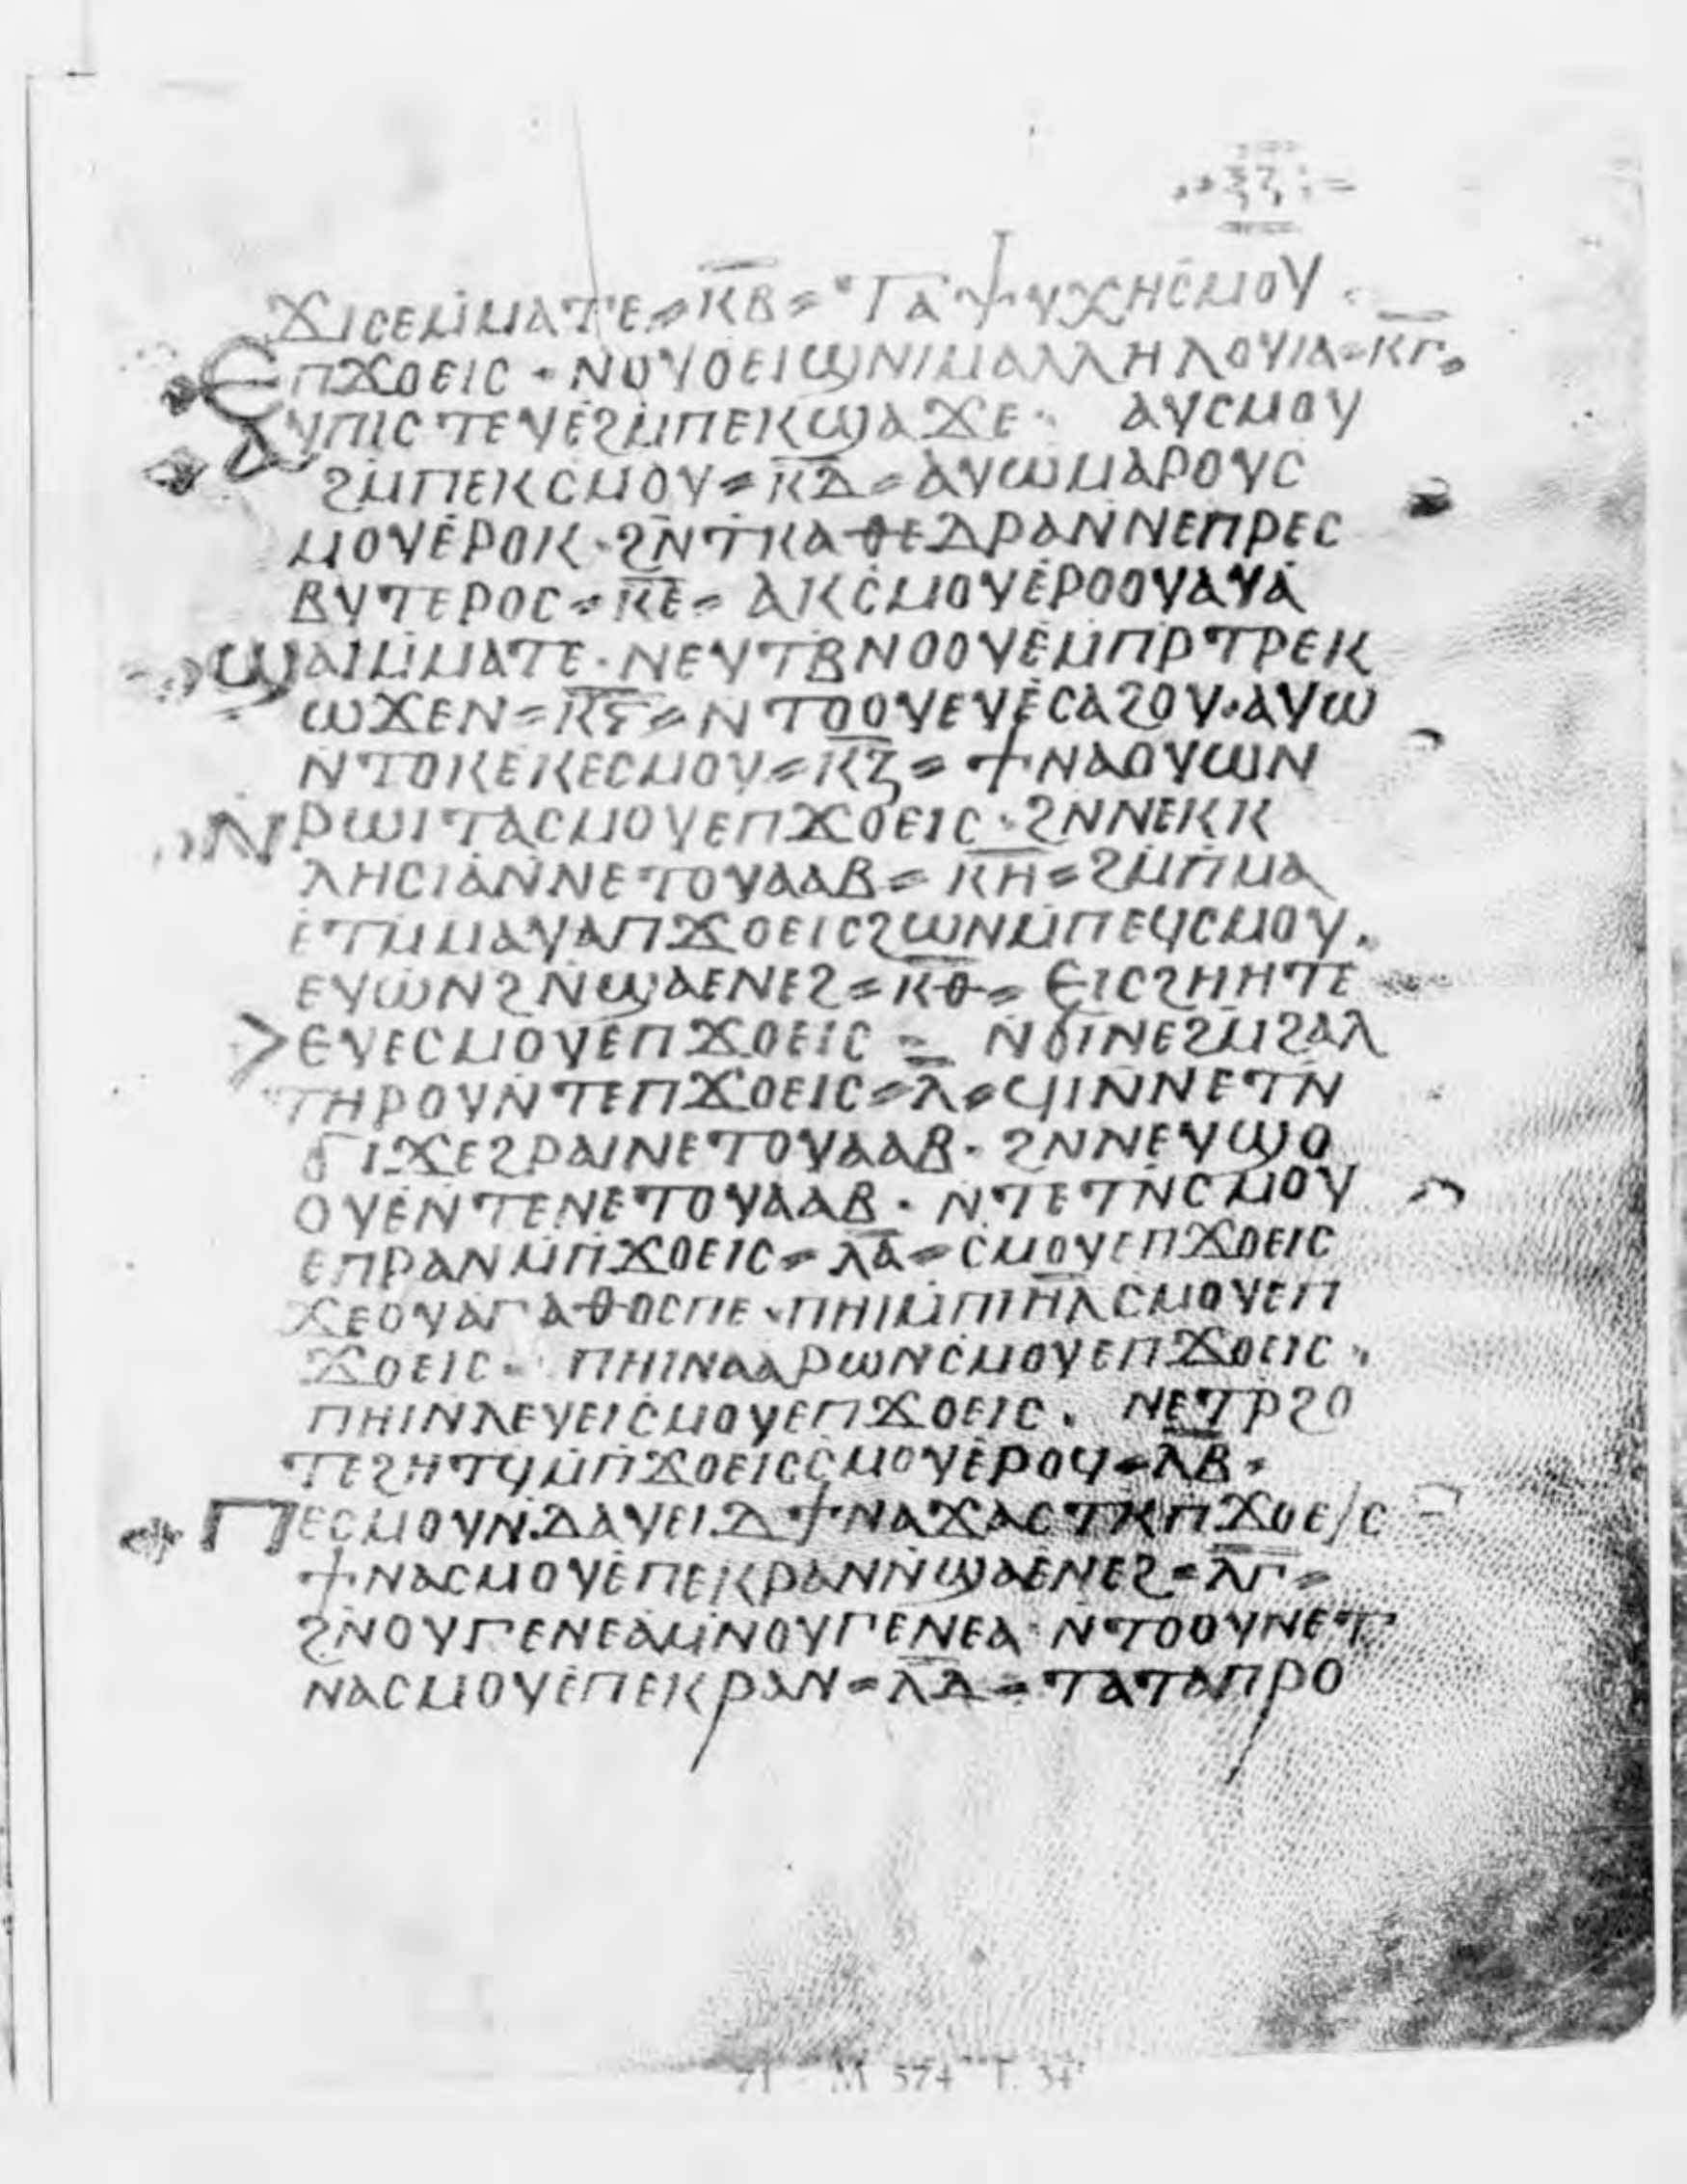 ϫⲓⲥⲉⲙ̇ⲙⲁⲧⲉ = ⲕ̅ⲃ̅ = ⲧⲁⲯⲩⲭⲏⲥⲙⲟⲩ
ⲉⲡϫⲟⲉⲓⲥ · ⲛⲟⲩⲟⲉⲓϣⲛⲓⲙⲁⲗⲗⲏⲗⲟⲩⲓⲁ = ⲕ̅ⲅ̅ =
ⲁⲩⲡⲓⲥⲧⲉⲩⲉ̇ϩⲙ̇ⲡⲉⲕϣⲁϫⲉ · ⲁⲩⲥⲙⲟⲩ
ϩⲙ̇ⲡⲉⲕⲥⲙⲟⲩ = ⲕ̅ⲇ̅ = ⲁⲩⲱⲙⲁⲣⲟⲩⲥ
ⲙⲟⲩⲉ̇ⲣⲟⲕ · ϩⲛ̇ⲧⲕⲁⲑⲉⲇⲣⲁⲛ̇ⲛⲉⲡⲣⲉⲥ
ⲃⲩⲧⲉⲣⲟⲥ = ⲕ̅ⲉ̅ = ⲁⲕⲥⲙⲟⲩⲉ̇ⲣⲟⲟⲩⲁⲩⲁ̇
ϣⲁⲓⲙ̇ⲙⲁⲧⲉ · ⲛⲉⲩⲧⲃⲛⲟⲟⲩⲉ̇ⲙⲡⲣⲧⲣⲉⲕ
ⲱϫⲉⲛ = ⲕ̅ⲋ̅ = ⲛⲧⲟⲟⲩⲉⲩⲉ̇ⲥⲁϩⲟⲩ · ⲁⲩⲱ
ⲛ̇ⲧⲟⲕⲉ̇ⲕⲉⲥⲙⲟⲩ = ⲕ̅ⲍ̅ = ϯⲛⲁⲟⲩⲱⲛ
ⲛ̇ⲣⲱⲓⲧⲁⲥⲙⲟⲩⲉⲡϫⲟⲉⲓⲥ · ϩⲛⲛⲉⲕⲕ
ⲗⲏⲥⲓⲁⲛ̇ⲛⲉⲧⲟⲩⲁⲁⲃ = ⲕ̅ⲏ̅ = ϩⲙ̇ⲡ̇ⲙⲁ
ⲉ̇ⲧⲙ̇ⲙⲁⲩⲁⲡϫⲟⲉⲓⲥϩⲱⲛⲙ̇ⲡⲉϥⲥⲙⲟⲩ ·
ⲉⲩⲱⲛϩⲛ̇ϣⲁⲉⲛⲉϩ = ⲕ̅ⲑ̅ = ⲉⲓⲥϩⲏⲏⲧⲉ
ⲉⲩⲉⲥⲙⲟⲩⲉⲡϫⲟⲉⲓⲥ = ⲛ̇ϭⲓⲛⲉϩⲙ̇ϩⲁⲗ
ⲧⲏⲣⲟⲩⲛ̇ⲧⲉⲡϫⲟⲉⲓⲥ = ⲗ̅ = ϥⲓⲛ̇ⲛⲉⲧⲛ̇
ϭⲓϫⲉϩⲣⲁⲓⲛⲉⲧⲟⲩⲁⲁⲃ · ϩⲛⲛⲉⲩϣⲟ
ⲟⲩⲉ̇ⲛ̇ⲧⲉⲛⲉⲧⲟⲩⲁⲁⲃ · ⲛ̇ⲧⲉⲧⲛ̇ⲥⲙⲟⲩ
ⲉⲡⲣⲁⲛⲙ̇ⲡ̇ϫⲟⲉⲓⲥ = ⲗ̅ⲁ̅ = ⲥⲙⲟⲩⲉⲡϫⲟⲉⲓⲥ
ϫⲉⲟⲩⲁⲅⲁⲑⲟⲥⲡⲉ · ⲡⲏⲓⲙ̇ⲡⲓ̅ⲏ̅ⲗ̅ⲥⲙⲟⲩⲉⲡ
ϫⲟⲉⲓⲥ · ⲡⲏⲓⲛⲁⲁⲣⲱⲛⲥⲙⲟⲩⲉⲡϫⲟⲉⲓⲥ ·
ⲡⲏⲓⲛⲗⲉⲩⲉⲓⲥⲙⲟⲩⲉⲡϫⲟⲉⲓⲥ · ⲛⲉⲧⲣϩⲟ
ⲧⲉϩⲏⲧϥⲙ̇ⲡ̇ϫⲟⲉⲓⲥⲥⲙⲟⲩⲉ̇ⲣⲟϥ = ⲗ̅ⲃ̅ =
ⲡⲉⲥⲙⲟⲩⲛ̇ⲇⲁⲩⲉⲓⲇϯⲛⲁϫⲁⲥⲧⲕ̅ⲡϫⲟⲉⲓⲥ
ϯⲛⲁⲥⲙⲟⲩⲉ̇ⲡⲉⲕⲣⲁⲛⲛ̇ϣⲁⲉ̇ⲛⲉϩ = ⲗ̅ⲅ̅ =
ϩⲛ̇ⲟⲩⲅⲉⲛⲉⲁⲙ̇ⲛ̇ⲟⲩⲅⲉⲛⲉⲁ · ⲛ̇ⲧⲟⲟⲩⲛⲉⲧ
ⲛⲁⲥⲙⲟⲩⲉ̇ⲡⲉⲕⲣⲁⲛ = ⲗ̅ⲇ̅ = ⲧⲁⲧⲁⲡⲣⲟ
71 M 574 F. 34